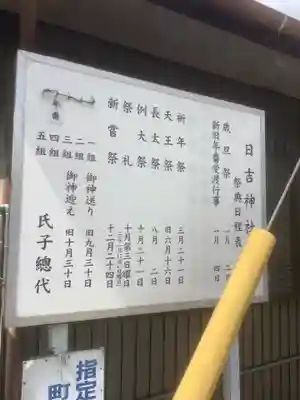 日吉神社
祭典日程表
歳旦祭 一月
新旧年番受渡行事 一月 四日
祈年祭 三月二十一日
天王祭 旧六月十六日
長太祭 八月 二日
例大祭 十月二十一日
祭礼 十月第三日曜日
新嘗祭 十二月二十四日
一組 御神送り 旧九月三十日
二組
三組 御神迎え 旧十月三十日
四組
五組
氏子總代
指定
町